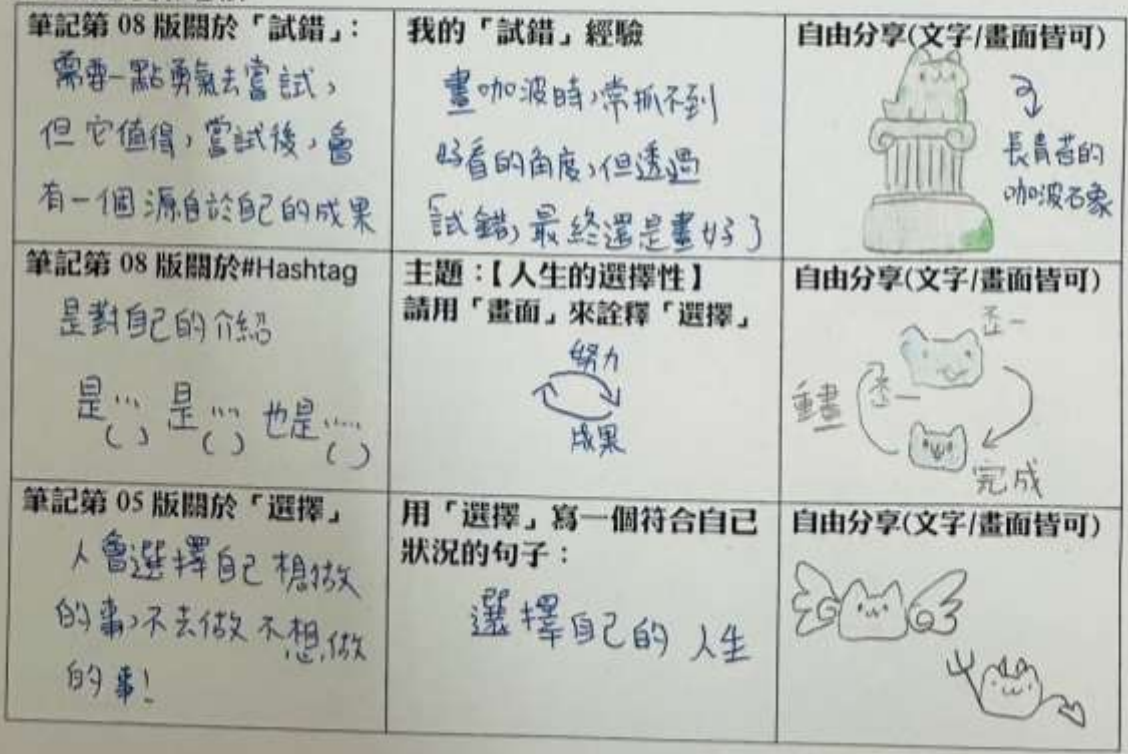 筆記第 08 版關於「試錯」:
需要一點勇氣去嘗試,
但它值得,嘗試後,會
有一個源自於自己的成果
我的「試錯」經驗
畫咖波時,常抓不到
好看的角度,但透過
試錯,最終還是畫好了
自由分享(文字/畫面皆可)
長青苔的
咖波石象
筆記第 08 版關於#Hashtag
是對自己的介紹
是... 是... 也是.....
( ) ( ) ( )
主題:【人生的選擇性】
請用「畫面」來詮釋「選擇」
努力
成果
自由分享(文字/畫面皆可)
歪一
重畫
歪一
完成
筆記第 05 版關於「選擇」
人會選擇自己想做
的事,不去做不想做
的事!
用「選擇」寫一個符合自己
狀況的句子:
選擇自己的人生
自由分享(文字/畫面皆可)